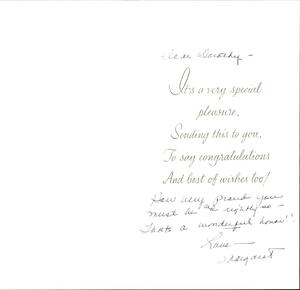 Dear Dorothy -
It's a very special
pleasure,
Sending this to you,
To say congratulations
And best of wishes too!
How very proud you
must be as rightly so -
That's a wonderful honor!!
Love -
Margaret